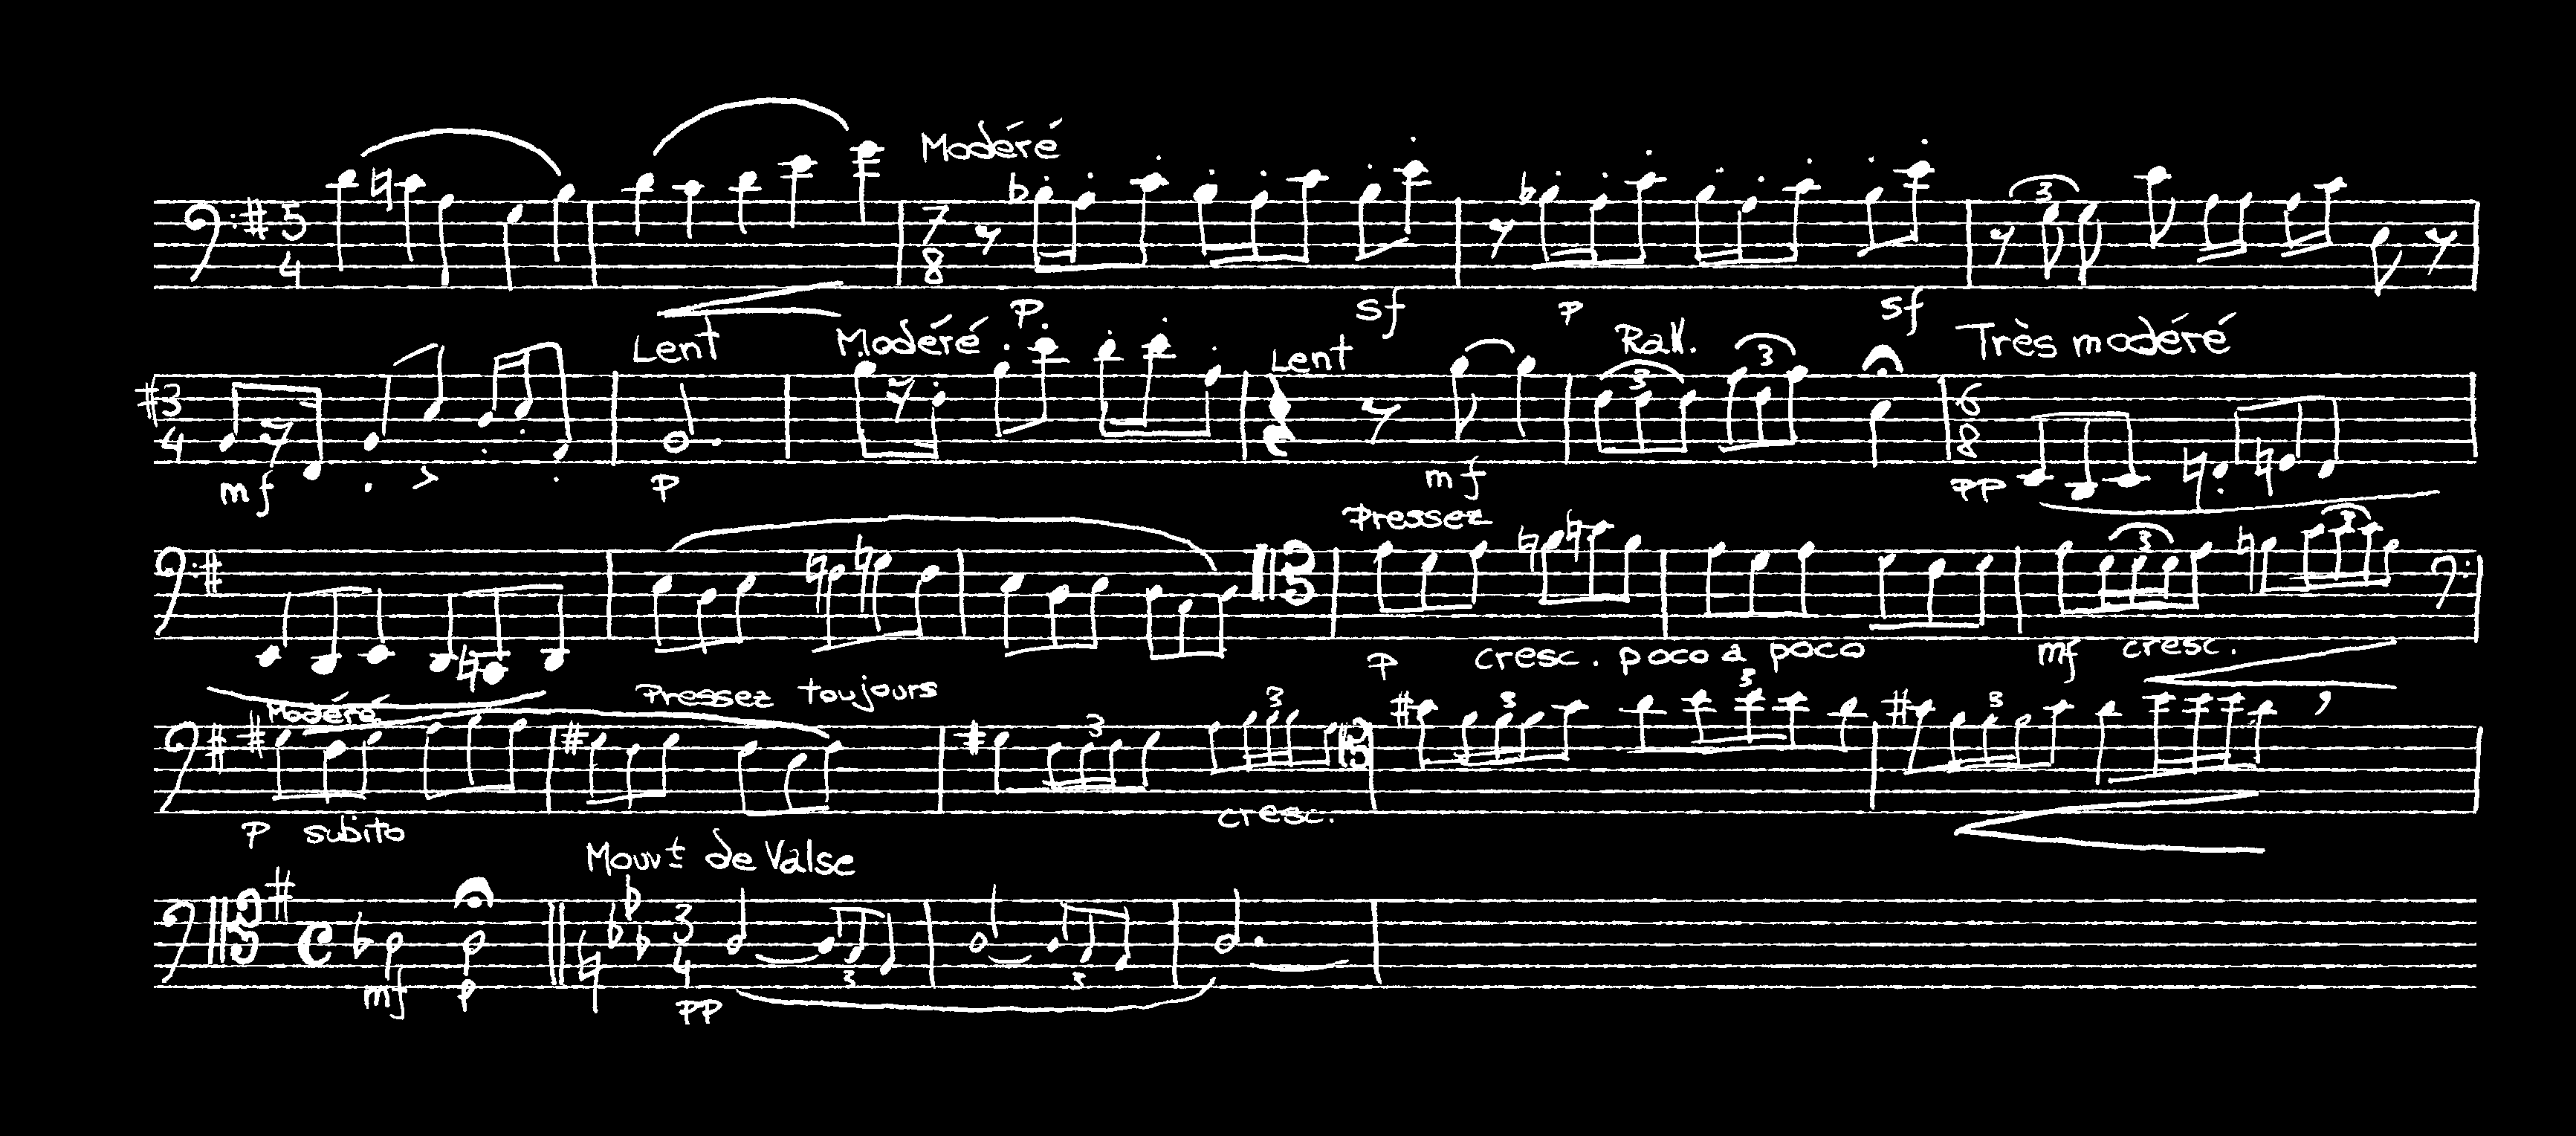 Modéré
5 4 7 8 3
p sf p sf
Lent Modéré Lent Rall. Très modéré
3 4 3 3 6 8
mf p mf pp
Pressez
3 3
p cresc. poco a poco mf cresc.
Modéré Pressez toujours
3 3 3 3
p subito cresc.
Mouvt de Valse
C 3 4 3 3
mf p pp